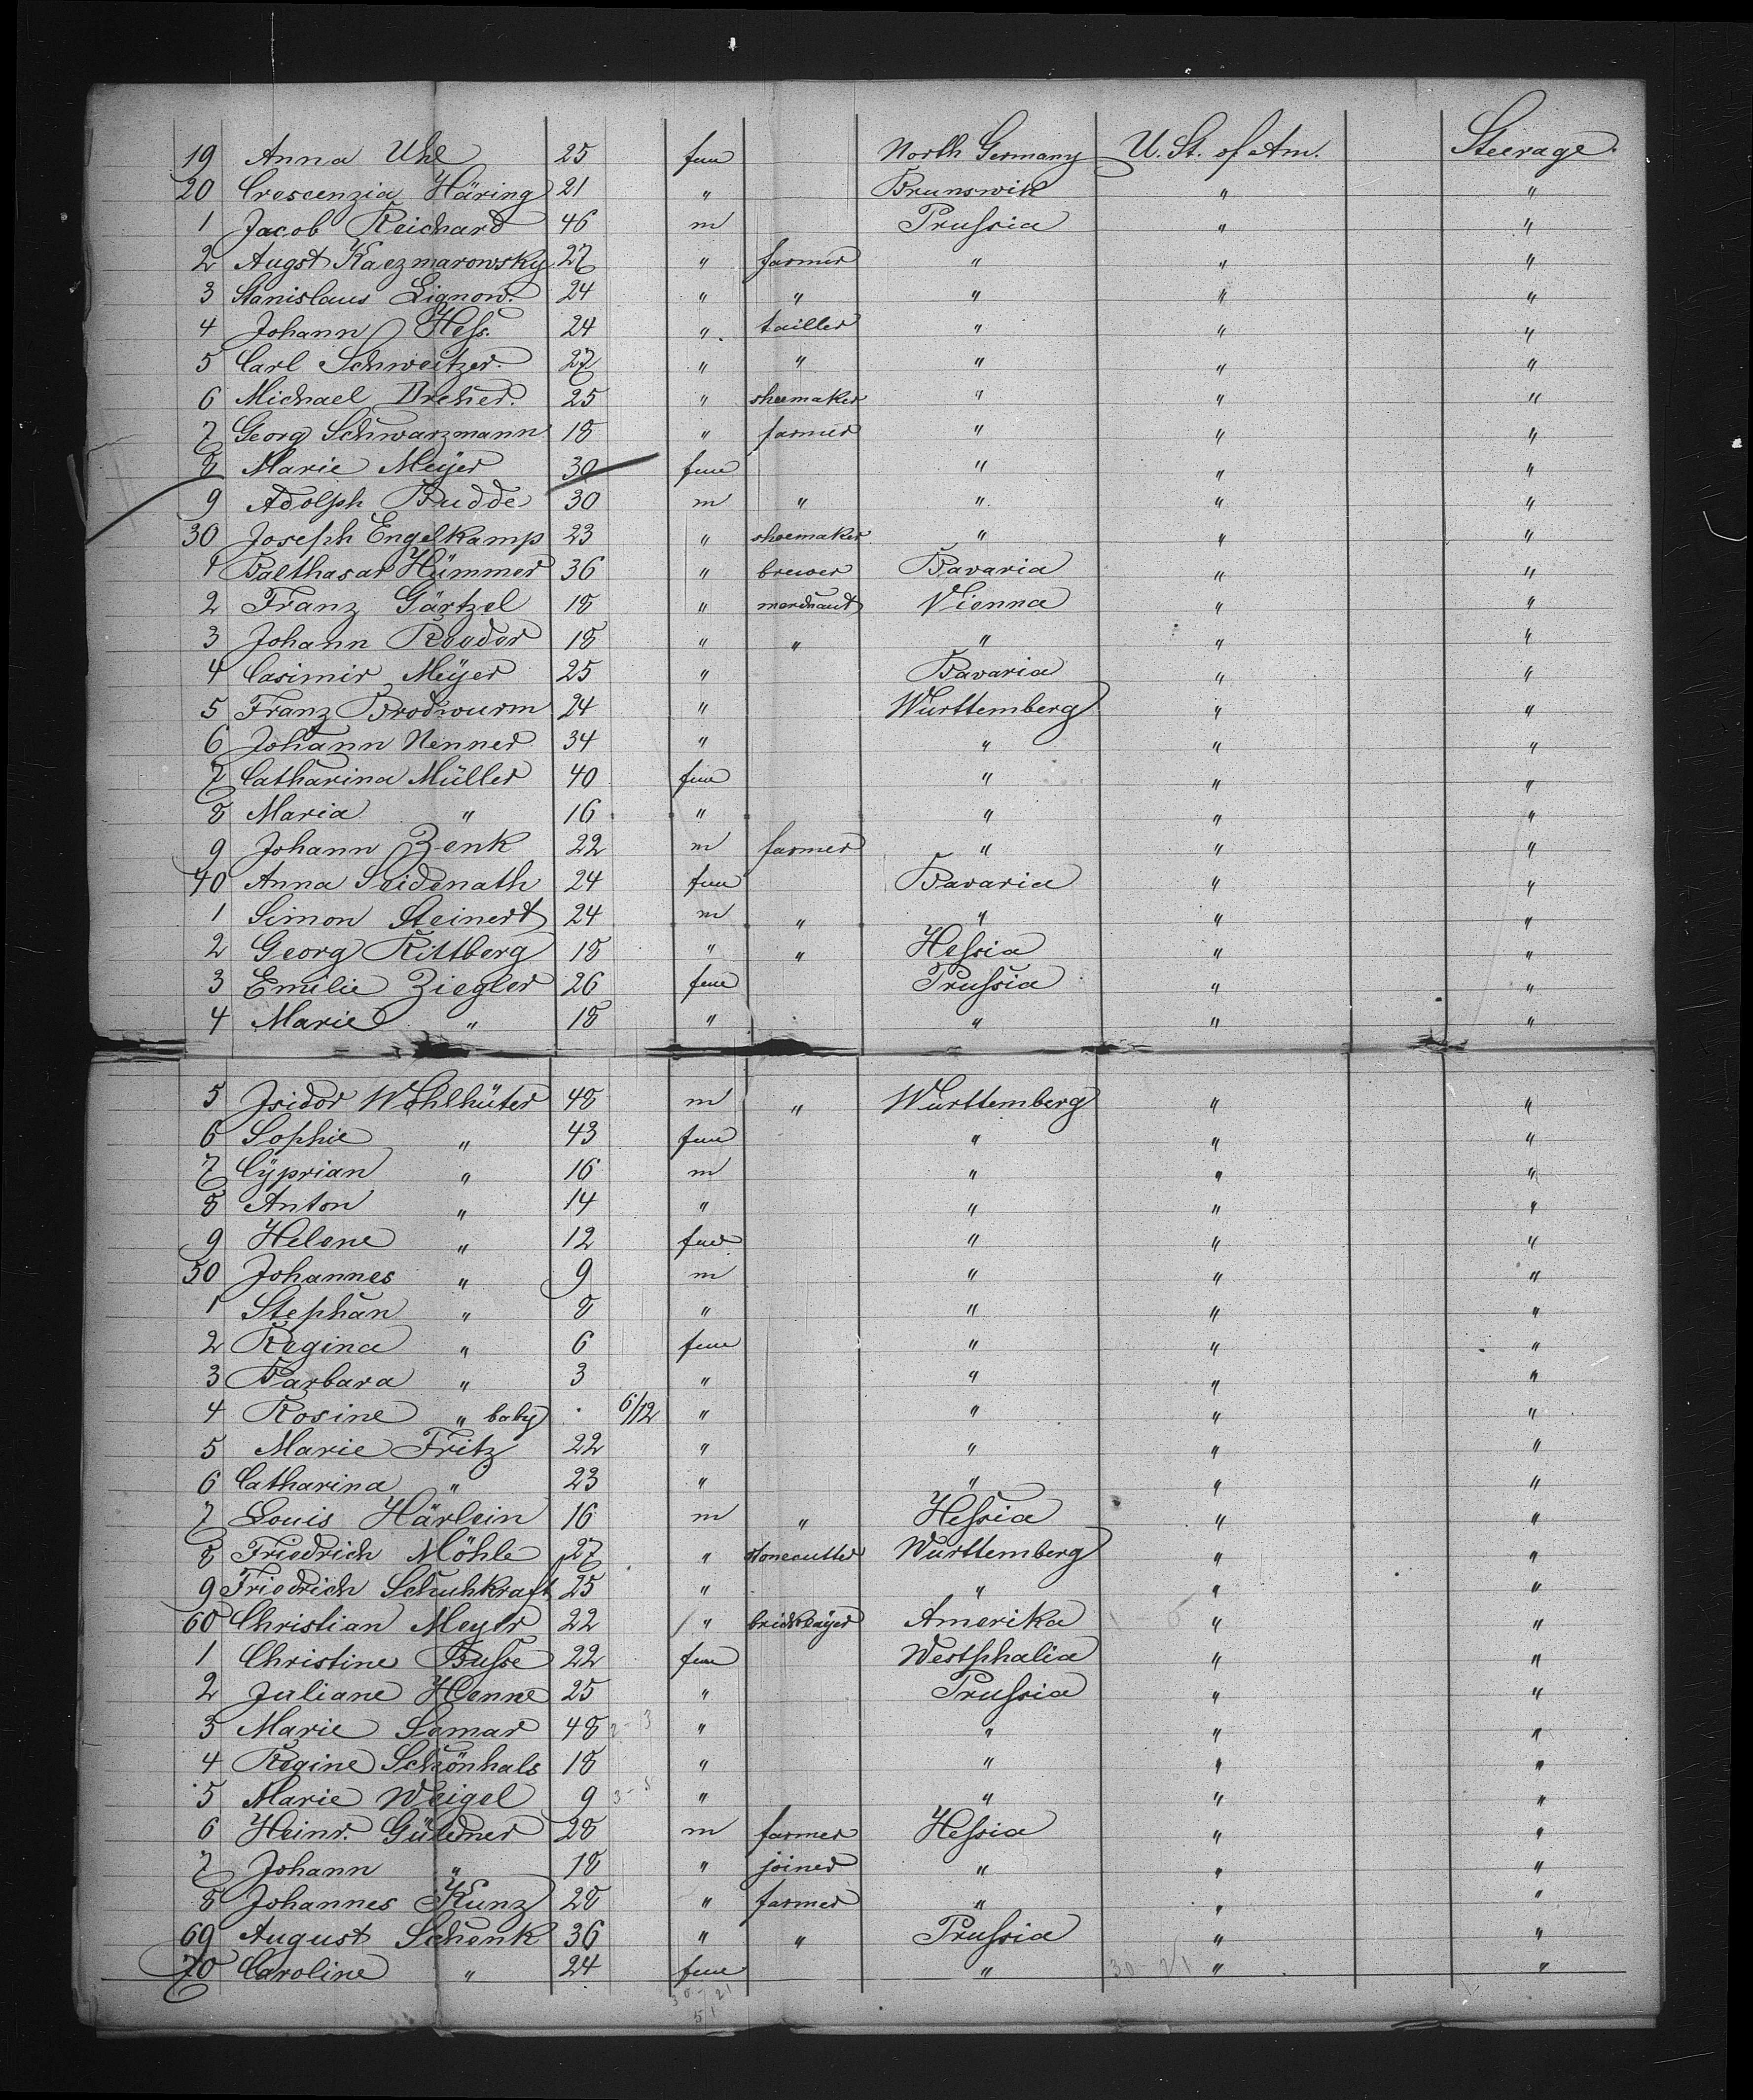 19 Anna Uhl 25 fem North Germany U. St. of Am. Steerage.
20 Crescenzia Häring 21 " Brunswik " "
1 Jacob Reichard 46 m Prussia " "
2 Augst Kaczmarowsky 27 " farmer " " "
3 Stanislaus Lignow. 24 " " " " "
4 Johann Hess. 24 " tailler " " "
5 Carl Schweitzer. 27 " " " " "
6 Michael Dreher. 25 " shoemaker " " "
7 Georg Schwarzmann 18 " farmer " " "
8 Marie Meÿer 30 fem " " "
9 Adolph Budde 30 m " " " "
30 Joseph Engelkamp 23 " shoemaker " " "
1 Balthasar Hümmer 36 " brewer Bavaria " "
2 Franz Gärtzel 18 " merchant Vienna " "
3 Johann Roeder 18 " " " " "
4 Casimir Meÿer 25 " Bavaria " "
5 Franz Brodwurm 24 " Wurttemberg " "
6 Johann Nenner 34 " " " "
7 Catharina Müller 40 fem " " "
8 Maria " 16 " " " "
9 Johann Zenk 22 m farmer " " "
40 Anna Seidenath 24 fem Bavaria " "
1 Simon Steinert 24 m " " " "
2 Georg Rittberg 18 " " Hessia " "
3 Emilie Ziegler 26 fem Prussia " "
4 Marie " 18 " " " "
5 Isidor Wohlhüter 48 m " Wurttemberg " "
6 Sophie " 43 fem " " "
7 Cÿprian " 16 m " " "
8 Anton " 14 " " " "
9 Helene " 12 fem " " "
50 Johannes " 9 m " " "
1 Stephan " 8 " " " "
2 Regina " 6 fem " " "
3 Barbara " 3 " " " "
4 Rosine " baby 6/12 " " " "
5 Marie Fritz 22 " " " "
6 Catharina " 23 " " " "
7 Louis Härlein 16 m " Hessia " "
8 Friedrich Möhle 27 " stonecutter Wurttemberg " "
9 Friedrich Schuhkraft 25 " " " "
60 Christian Meyer 22 " bricklayer Amerika " "
1 Christine Busse 22 fem Westphalia " "
2 Juliane Henne 25 " Prussia " "
3 Marie Somar 48 2-3 " " " "
4 Regine Schönhals 18 " " " "
5 Marie Weigel 9 " " " "
6 Heinr. Güldner 28 m farmer Hessia " "
7 Johann " 18 " joiner " " "
8 Johannes Kunz 28 " farmer " " "
69 August Schenk 36 " " Prussia " "
70 Caroline " 24 fem " " "